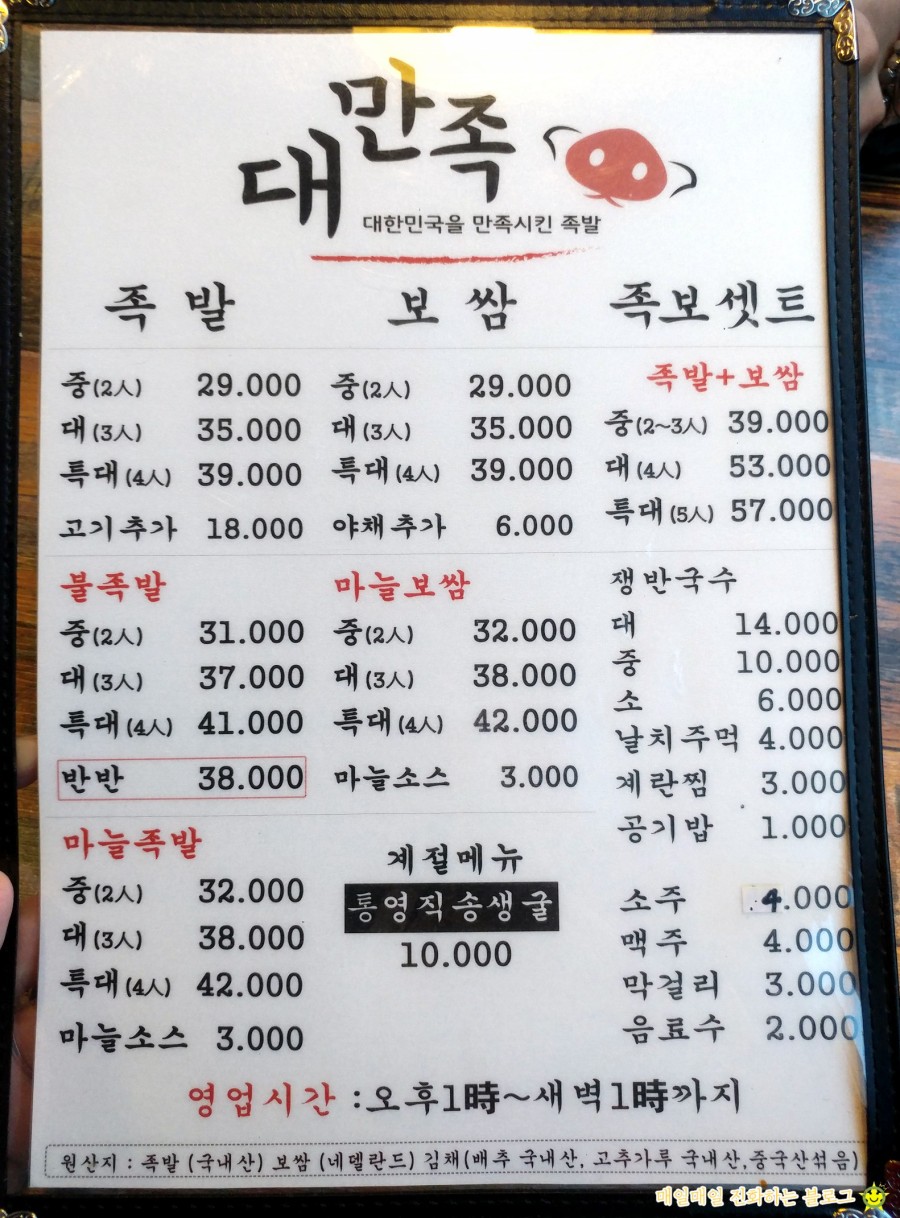 대만족
대한민국을 만족시킨 족발
족 발
중(2人) 29.000
대(3人) 35.000
특대(4人) 39.000
고기추가 18.000
불족발
중(2人) 31.000
대(3人) 37.000
특대(4人) 41.000
반반 38.000
마늘족발
중(2人) 32.000
대(3人) 38.000
특대(4人) 42.000
마늘소스 3.000
보 쌈
중(2人) 29.000
대(3人) 35.000
특대(4人) 39.000
야채추가 6.000
마늘보쌈
중(2人) 32.000
대(3人) 38.000
특대(4人) 42.000
마늘소스 3.000
계절메뉴
통영직송생굴
10.000
족보셋트
족발+보쌈
중(2~3人) 39.000
대(4人) 53.000
특대(5人) 57.000
쟁반국수
대 14.000
중 10.000
소 6.000
날치주먹 4.000
계란찜 3.000
공기밥 1.000
소주 4.000
맥주 4.000
막걸리 3.000
음료수 2.000
영업시간 :오후1時~새벽1時까지
원산지 : 족발 (국내산) 보쌈 (네델란드) 김채(배추 국내산, 고추가루 국내산,중국산섞음)
매일매일 진화하는 블로그